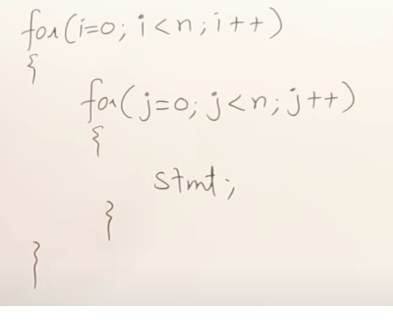 for(i=0; i<n; i++)
{
for(j=0; j<n; j++)
{
stmt;
}
}